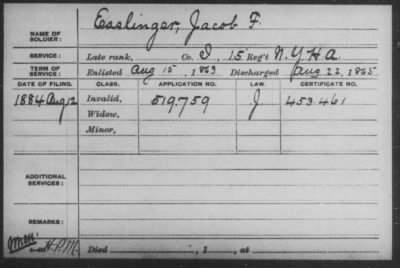 Esslinger, Jacob F.
NAME OF SOLDIER:
SERVICE: Late rank, Co. I, 15 Reg't N.Y.H.A.
TERM OF SERVICE: Enlisted Aug 15, 1863 Discharged Aug 22, 1865
DATE OF FILING. CLASS. APPLICATION NO. LAW. CERTIFICATE NO.
1884 Aug 12 Invalid, 519.759 J. 453.461
Widow,
Minor,
ADDITIONAL SERVICES:
REMARKS:
Died , 1 , at